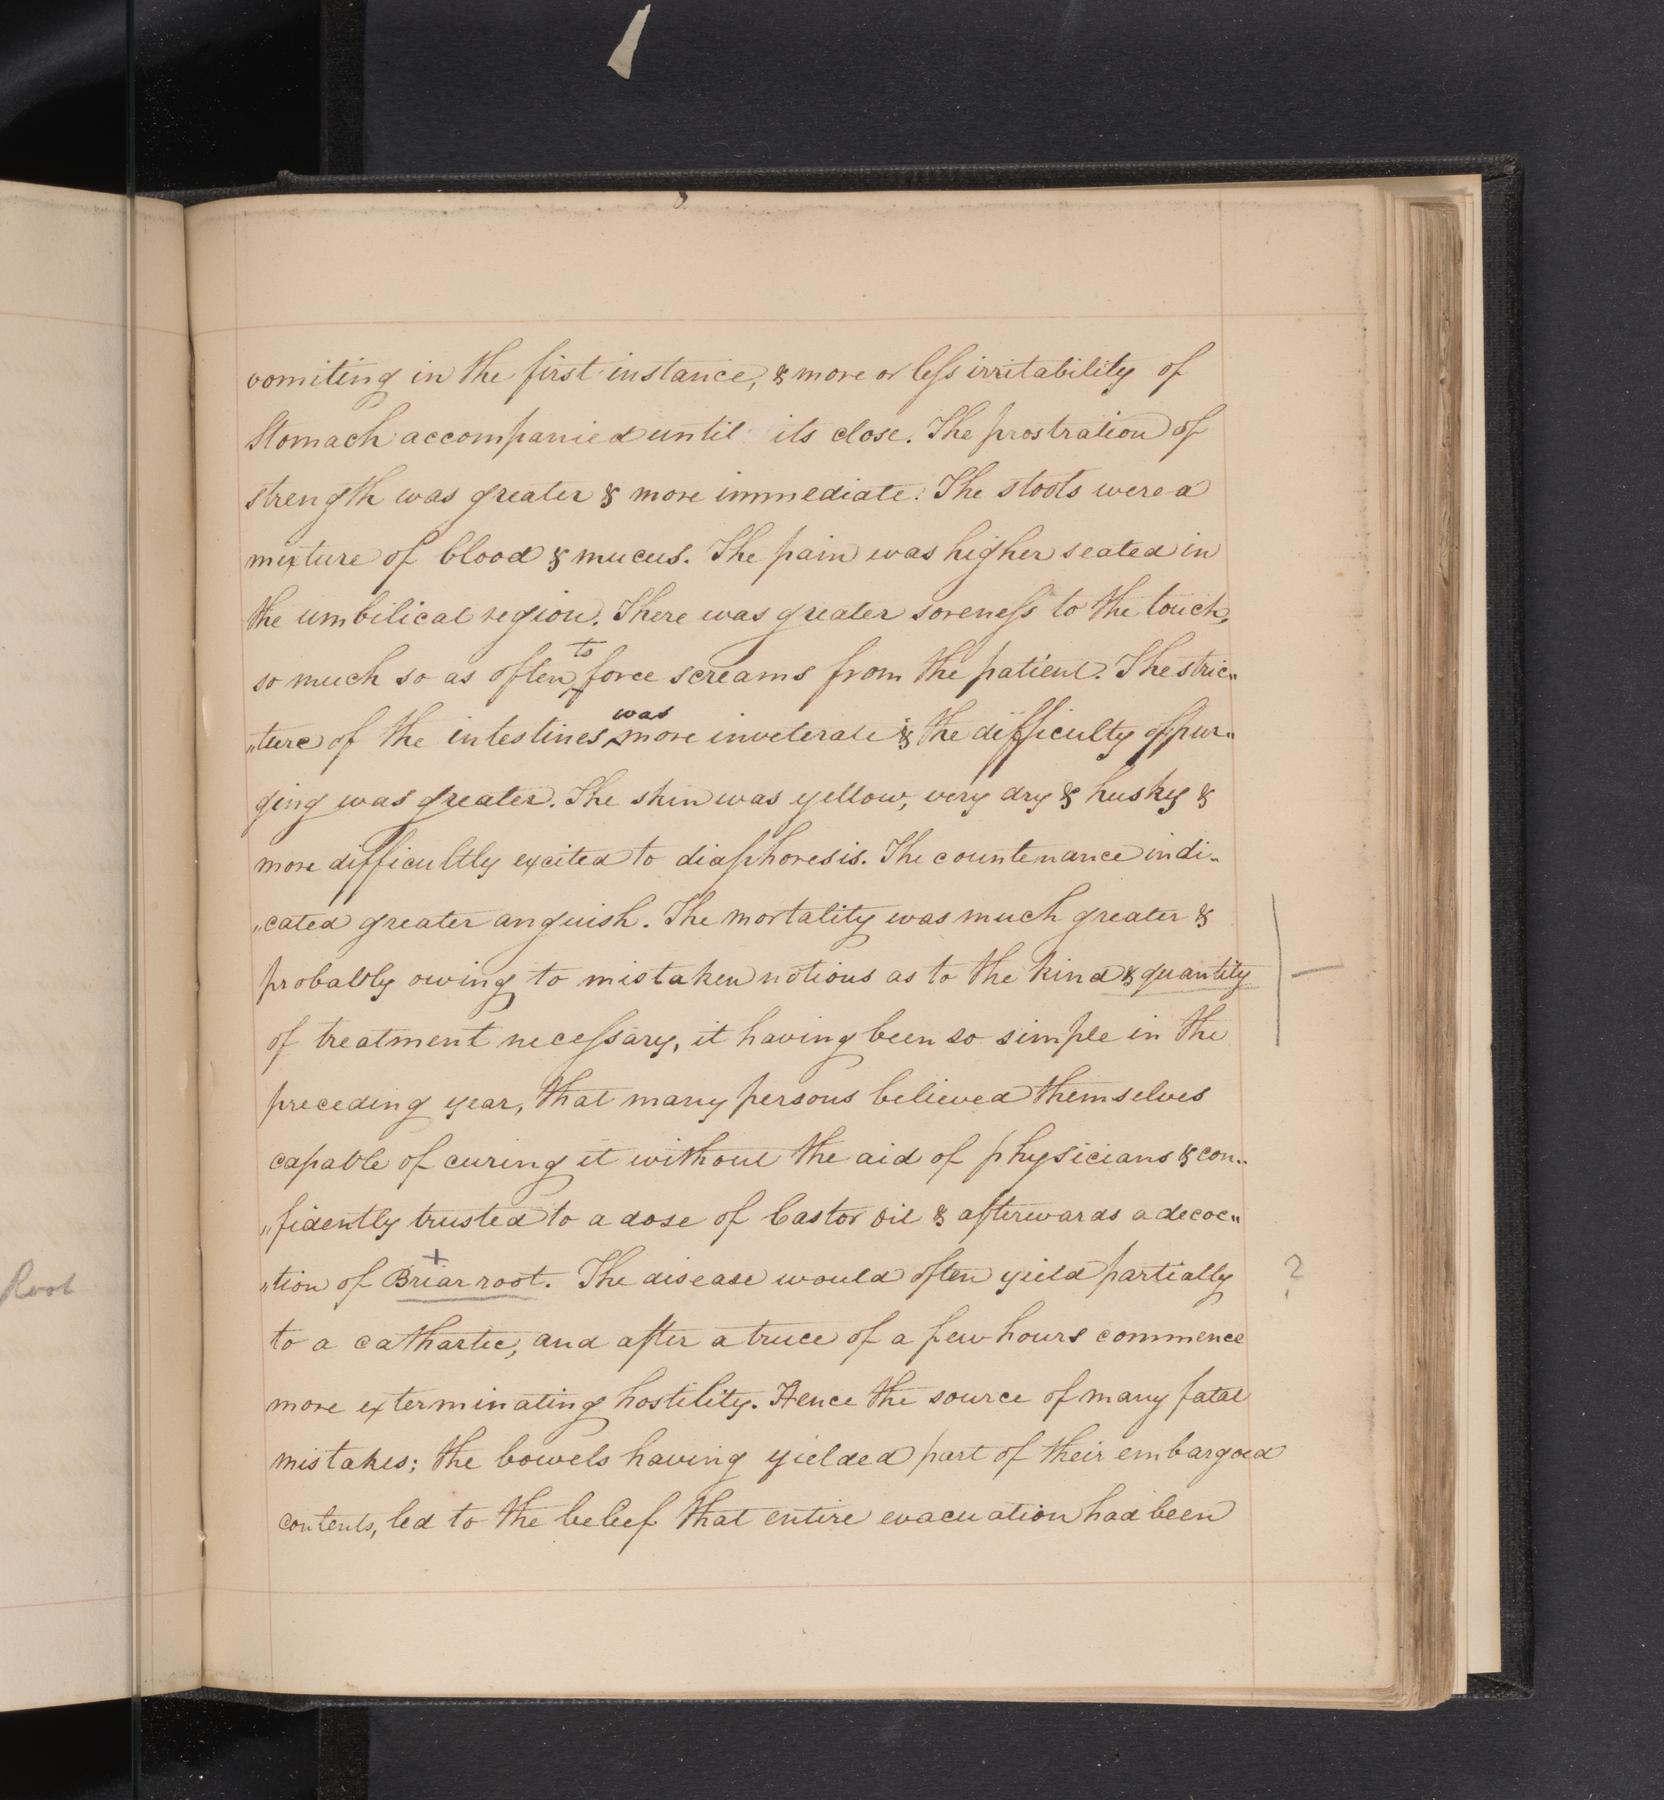 8
vomiting in the first instance, & more or less irritability of
Stomach accompanied until its close. The prostration of
strength was greater & more immediate. The stools were a
mixture of blood & mucus. The pain was higher seated in
the umbilical region. There was greater soreness to the touch,
to
so much so as often force screams from the patient. The stric„
was
„ture of the intestines more inveterate & the difficulty of pur„
ging was greater. The skin was yellow, very dry & husky &
more difficultly excited to diaphoresis. The countenance indi„
„cated greater anguish. The mortality was much greater &
probably owing to mistaken notions as to the kind & quantity
of treatment necessary, it having been so simple in the
preceding year, that many persons believed themselves
capable of curing it without the aid of physicians & con„
„fidently trusted to a dose of Castor oil & afterwards a decoc„
+
„tion of Briar root. The disease would often yield partially
?
Root
to a cathartic, and after a truce of a few hours commence
more exterminating hostility. Hence the source of many fatal
mistakes; the bowels having yielded part of their embargoed
contents, led to the belief that entire evacuation had been